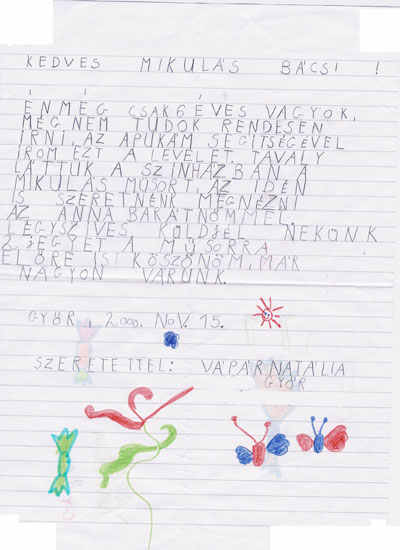 KEDVES MIKULÁS BÁCSI !
ÉN MÉG CSAK 6 ÉVES VAGYOK,
MÉG NEM TUDOK RENDESEN
ÍRNI, AZ APUKÁM SEGÍTSÉGÉVEL
ÍROM EZT A LEVELET. TAVALY
LÁTTUK A SZÍNHÁZBAN A
MIKULÁS MŰSORT, AZ IDÉN
IS SZERETNÉNK MEGNÉZNI
AZ ANNA BARÁTNŐMMEL.
LÉGYSZÍVES KÜLDJÉL NEKÜNK
2 JEGYET A MŰSORRA
ELŐRE IS KÖSZÖNÖM, MÁR
NAGYON VÁRUNK.
GYŐR, 2000. NOV. 15.
SZERETETTEL: VÁPÁR NATÁLIA
GYŐR